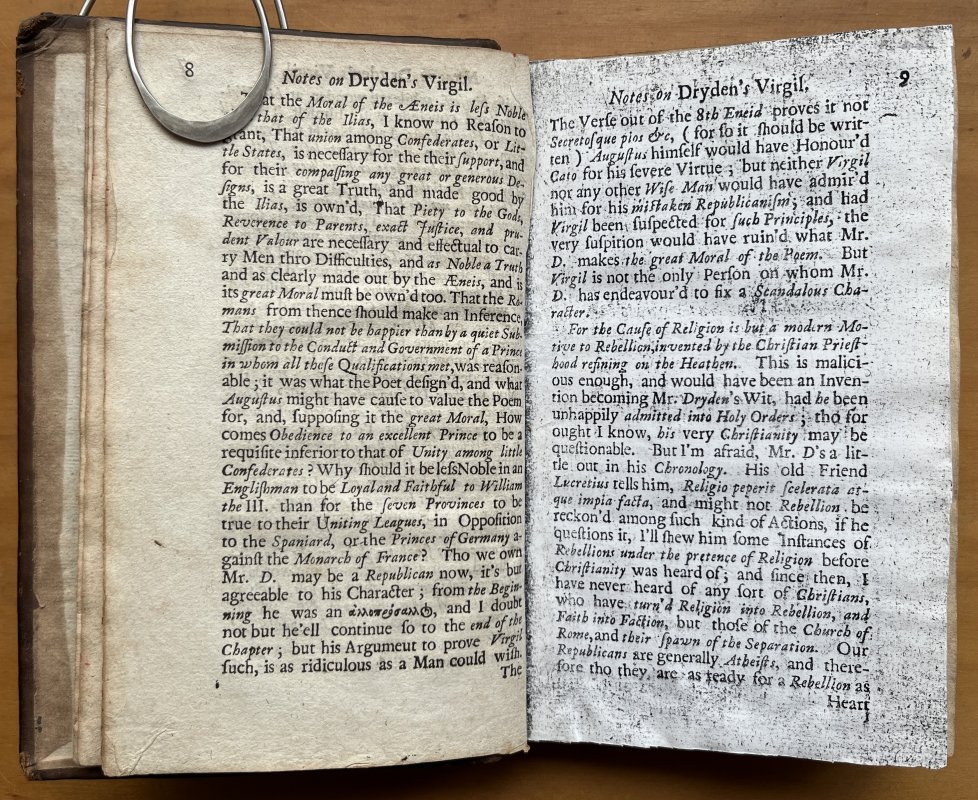 8
Notes on Dryden's Virgil.
at the Moral of the Æneis is leſs Noble
that of the Ilias, I know no Reaſon to
rant, That union among Confederates, or Lit-
tle States, is neceſſary for the their ſupport, and
for their compaſſing any great or generous De-
ſigns, is a great Truth, and made good by
the Ilias, is own'd, That Piety to the Gods,
Reverence to Parents, exact Juſtice, and pru-
dent Valour are neceſſary and effectual to car-
ry Men thro Difficulties, and as Noble a Truth
and as clearly made out by the Æneis, and is
its great Moral muſt be own'd too. That the Ro-
mans from thence ſhould make an Inference,
That they could not be happier than by a quiet Sub-
miſſion to the Conduct and Government of a Prince
in whom all theſe Qualifications met, was reaſon-
able; it was what the Poet deſign'd, and what
Auguſtus might have cauſe to value the Poem
for, and, ſuppoſing it the great Moral, How
comes Obedience to an excellent Prince to be a
requiſite inferior to that of Unity among little
Confederates? Why ſhould it be leſs Noble in an
Engliſhman to be Loyal and Faithful to William
the III. than for the ſeven Provinces to be
true to their Uniting Leagues, in Oppoſition
to the Spaniard, or the Princes of Germany a-
gainſt the Monarch of France? Tho we own
Mr. D. may be a Republican now, it's but
agreeable to his Character; from the Begin-
ning he was an and I doubt
not but he'ell continue ſo to the end of the
Chapter; but his Argumeut to prove Virgil
ſuch, is as ridiculous as a Man could wiſh.
The
Notes on Dryden's Virgil. 9
The Verſe out of the 8th Eneid proves it not
Secretoſque pios &c, (for ſo it ſhould be writ-
ten) Auguſtus himſelf would have Honour'd
Cato for his ſevere Virtue; but neither Virgil
nor any other Wiſe Man would have admir'd
him for his miſtaken Republicaniſm; and had
Virgil been ſuſpected for ſuch Principles, the
very ſuſpition would have ruin'd what Mr.
D. makes the great Moral of the Poem. But
Virgil is not the only Perſon on whom Mr.
D. has endeavour'd to fix a Scandalous Cha-
racter.
For the Cauſe of Religion is but a modern Mo-
tive to Rebellion, invented by the Chriſtian Prieſt-
hood refining on the Heathen. This is malici-
ous enough, and would have been an Inven-
tion becoming Mr. Dryden's Wit, had he been
unhappily admitted into Holy Orders; tho for
ought I know, his very Chriſtianity may be
queſtionable. But I'm afraid, Mr. D's a lit-
tle out in his Chronology. His old Friend
Lucretius tells him, Religio peperit ſcelerata at-
que impia facta, and might not Rebellion be
reckon'd among ſuch kind of Actions, if he
queſtions it, I'll ſhew him ſome Inſtances of
Rebellions under the pretence of Religion before
Chriſtianity was heard of; and ſince then, I
have never heard of any ſort of Chriſtians,
who have turn'd Religion into Rebellion, and
Faith into Faction, but thoſe of the Church of
Rome, and their ſpawn of the Separation. Our
Republicans are generally Atheiſts, and there-
fore tho they are as ready for a Rebellion as
Heart